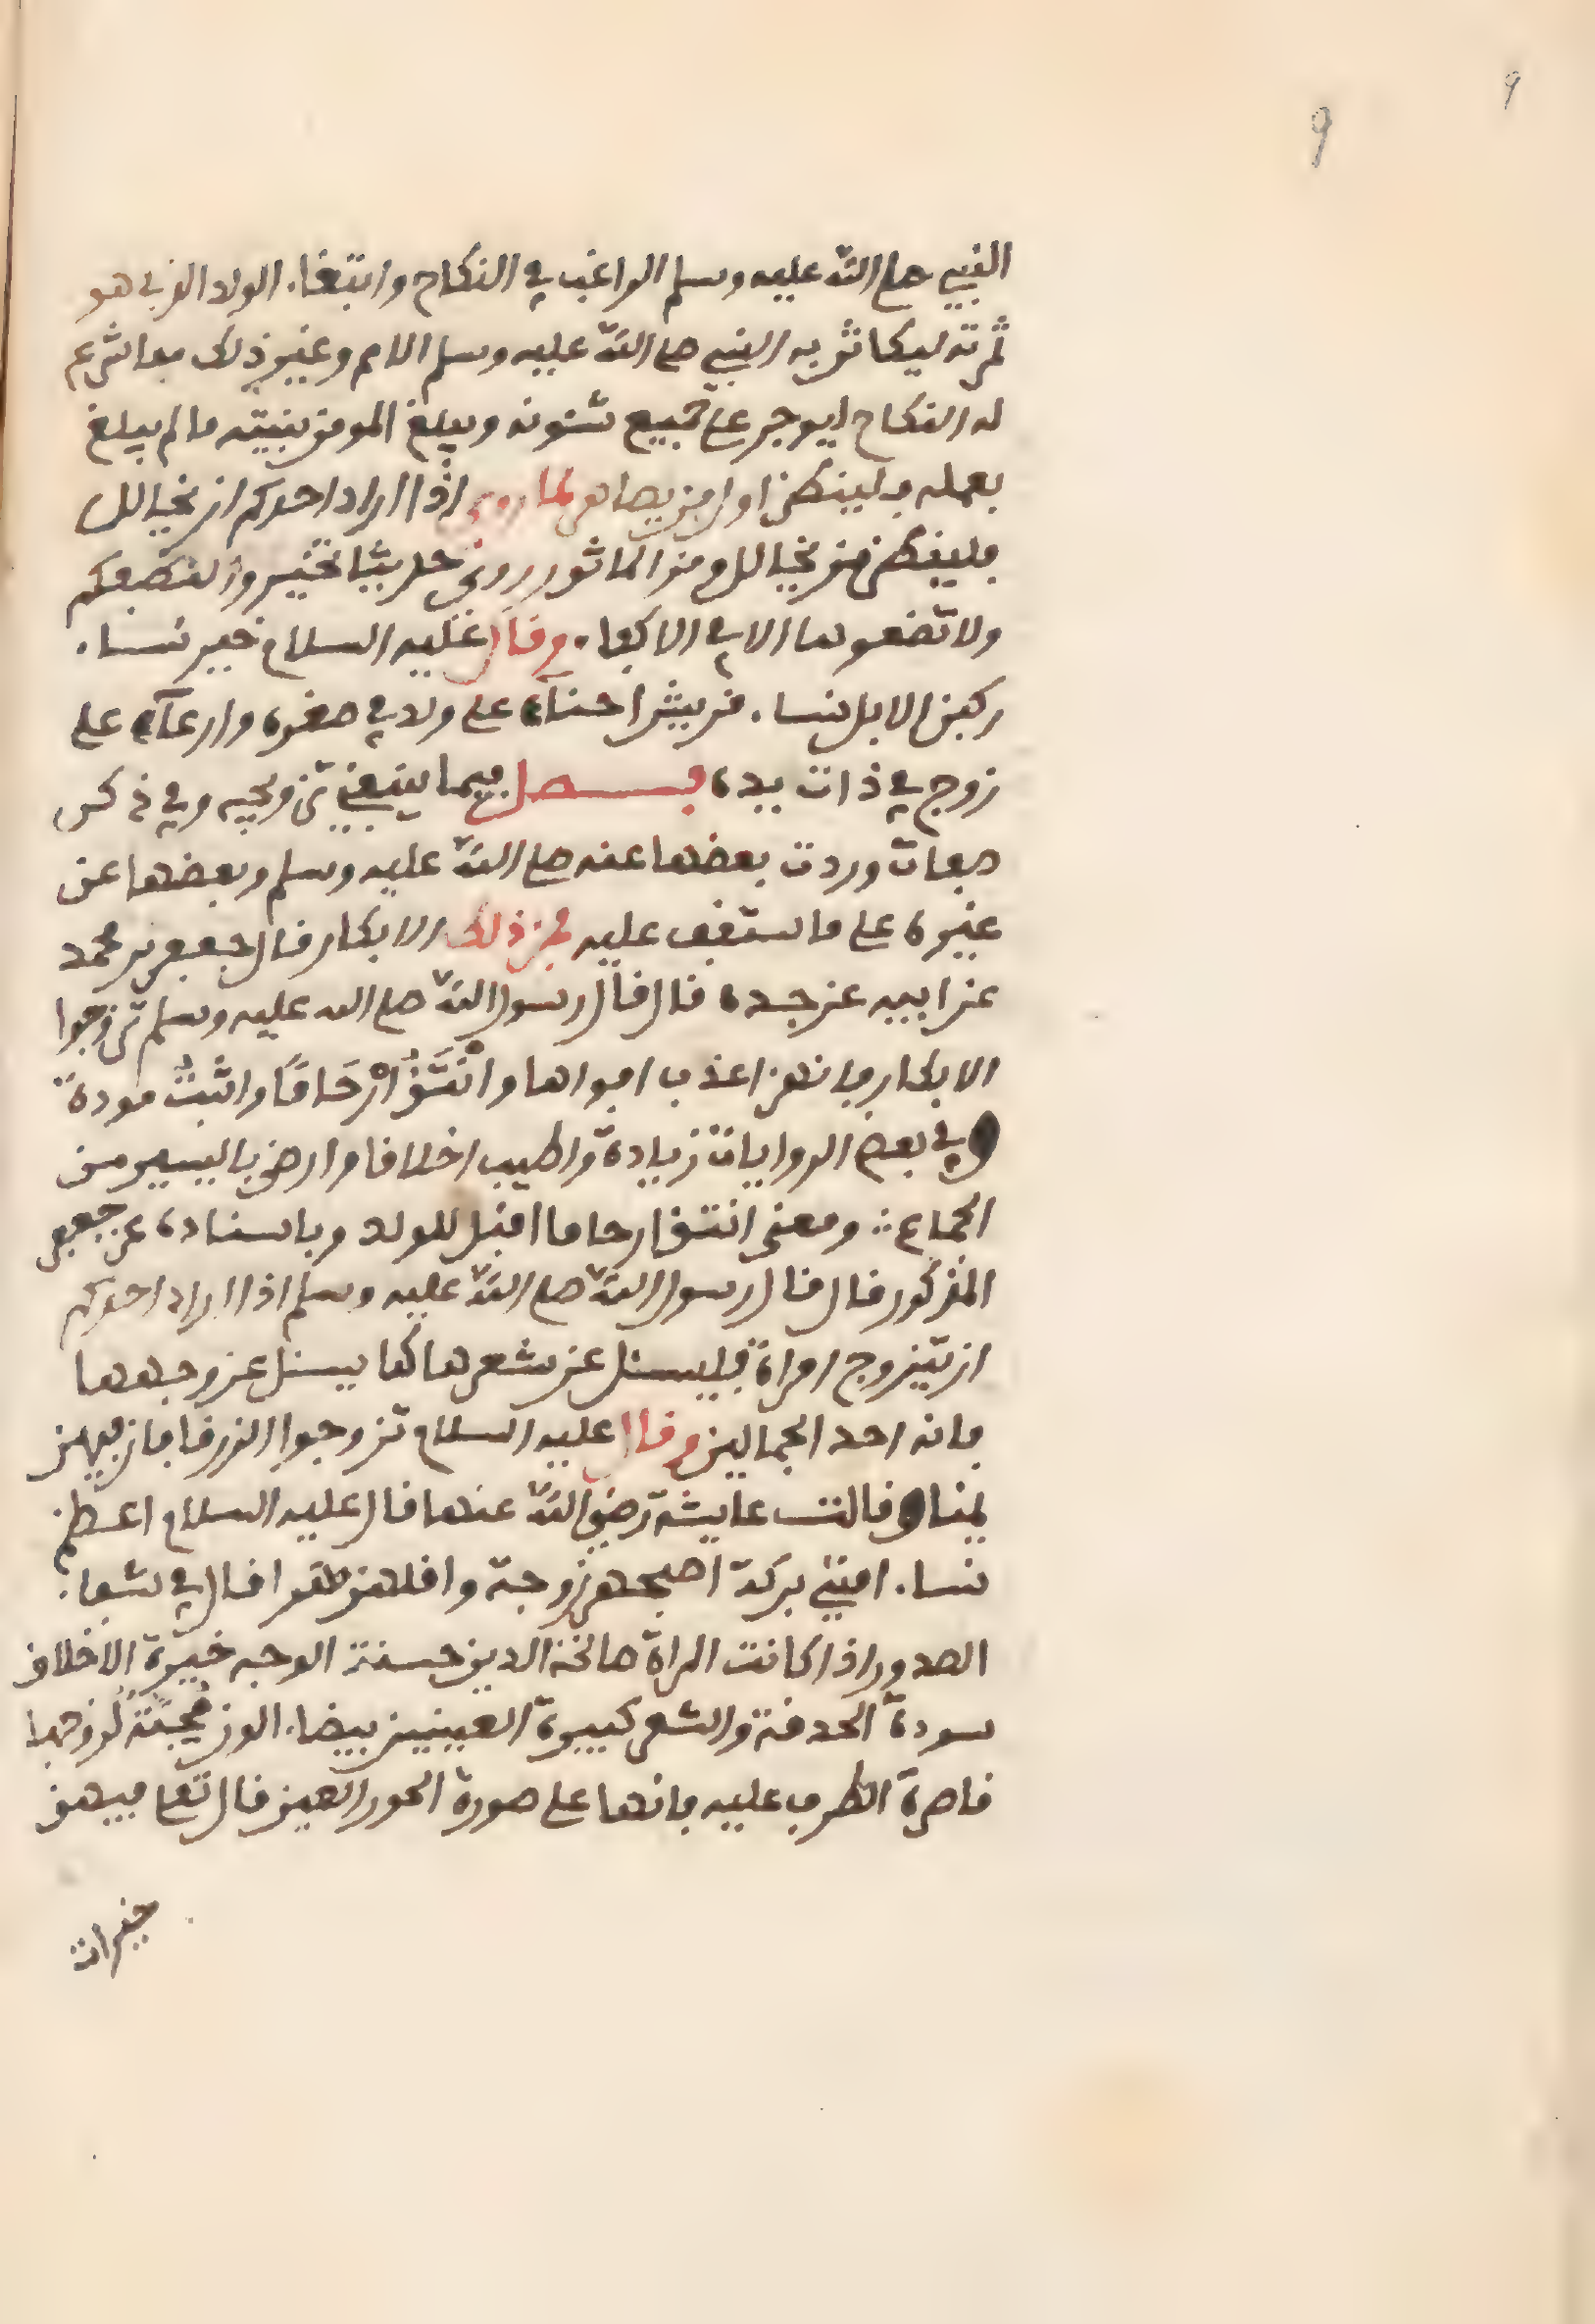 9
9
النبي صلى الله عليه وسلم الراغب في النكاح وابتغاء الولد الذي هو
ثمرته ليكاثر به النبي صلى الله عليه وسلم الامم وغير ذلك مما شرع
له النكاح ليوجر على جميع شئونه ويبلغ المومن بنيته ما لم يبلغ
بعمله فلينظر اولا من يصاهر لما روي اذا اراد احدكم ان
فلينظر من ومن الماثور روي حديثا تخيروا لنطفكم
ولا تضعوها الا في الاكفاء وقال عليه السلام خير نساء
ركبن الابل نساء قريش احناه على ولد في صغره وارعاه على
زوج في ذات يده فصل فيما ينبغي تزويجه وفي ذكر
صفات وردت بعضها عنه صلى الله عليه وسلم وبعضها عن
غيره على ما ستقف عليه فمن ذلك الابكار قال جعفر بن محمد
عن ابيه عن جده قال قال رسول الله صلى الله عليه وسلم تزوجوا
الابكار فانهن اعذب افواها وانتق ارحاما واثبت مودة
وفي بعض الروايات زيادة واطيب اخلاقا وارضى باليسير من
الجماع ومعنى انتق ارحاما اقبل للولد وباسناده عن جعفر
المذكور قال قال رسول الله صلى الله عليه وسلم اذا اراد احدكم
ان يتزوج امراة فليسئل عن شعرها كما يسئل عن وجهها
فانه احد الجمالين وقال عليه السلام تزوجوا الزرق فان فيهن
يمنا وقالت عايشة رضي الله عنها قال عليه السلام اعظم
نساء امتي بركة اصبحهن وجها واقلهن مهرا قال في شفاء
الصدور اذا كانت المراة صالحة الدين حسنة الوجه خيرة الاخلاق
سودة الحدقة والشعر كبيرة العينين بيضاء اللون محبة لزوجها
قاصرة الطرف عليه فانها على صورة الحور العين قال تعلى فيهن
خيرات